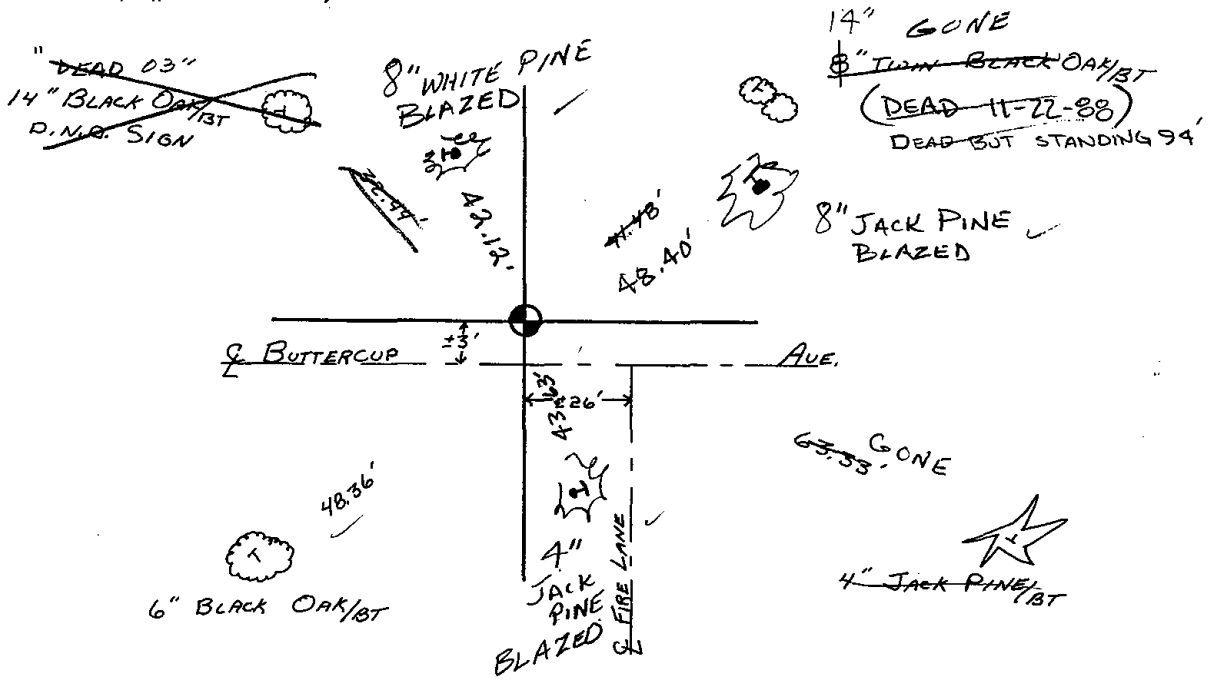 " DEAD 03"
14" BLACK OAK/BT
D.N.R. SIGN
8" WHITE PINE
BLAZED
14" GONE
8" TWIN BLACK OAK/BT
(DEAD 11-22-88)
DEAD BUT STANDING 94'
32.44'
42.12'
41.48'
48.40'
8" JACK PINE
BLAZED
±3'
℄ BUTTERCUP AVE.
43.63'
±26'
63.33' GONE
48.36'
6" BLACK OAK/BT
4"
JACK
PINE
BLAZED
℄ FIRE LANE
4" JACK PINE/BT